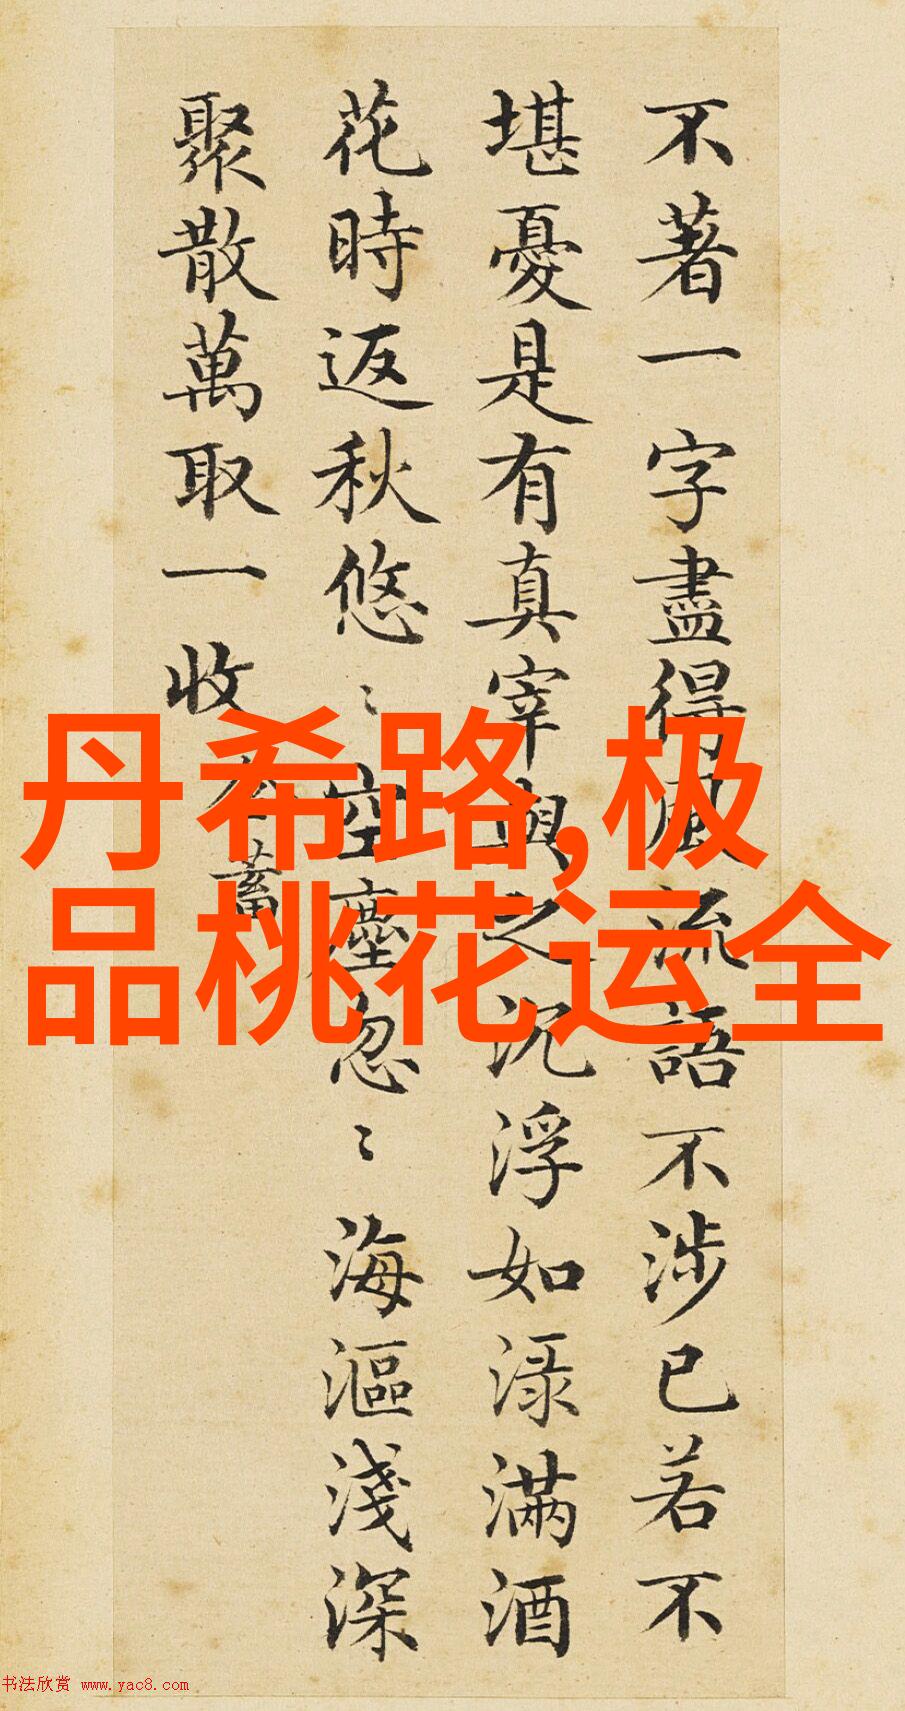 不著一字盡得風流語不涉已若不
堪憂是有真宰與之沉浮如渌滿酒
花時返秋悠〻空塵忽〻海漚淺深
聚散萬取一收
蓄
丹希路,极
品桃花运全
书法欣赏 www.yac8.com